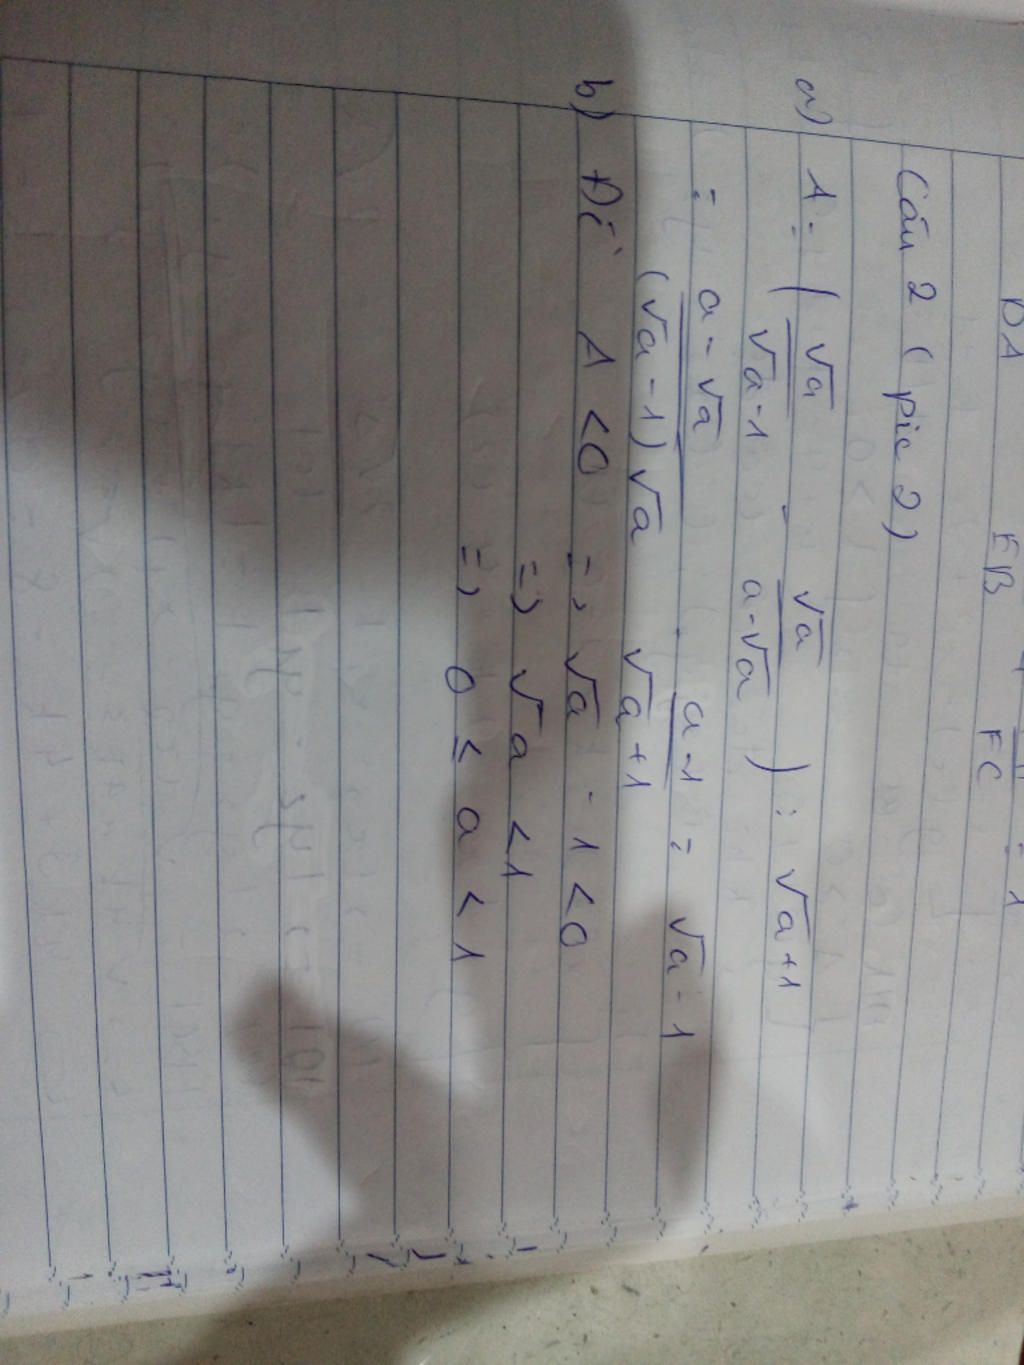 DA EB FC = 1
Câu 2 ( pic 2 )
a) A = ( √a / √a - 1 - √a / a - √a ) : √a + 1 / a - 1
= a - √a / (√a - 1) √a . a - 1 / √a + 1 = √a - 1
b) Để A < 0 => √a - 1 < 0
=> √a < 1
=> 0 ≤ a < 1